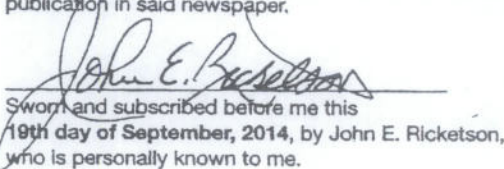 publication in said newspaper.
John E. Ricketson
Sworn and subscribed before me this
19th day of September, 2014, by John E. Ricketson,
who is personally known to me.